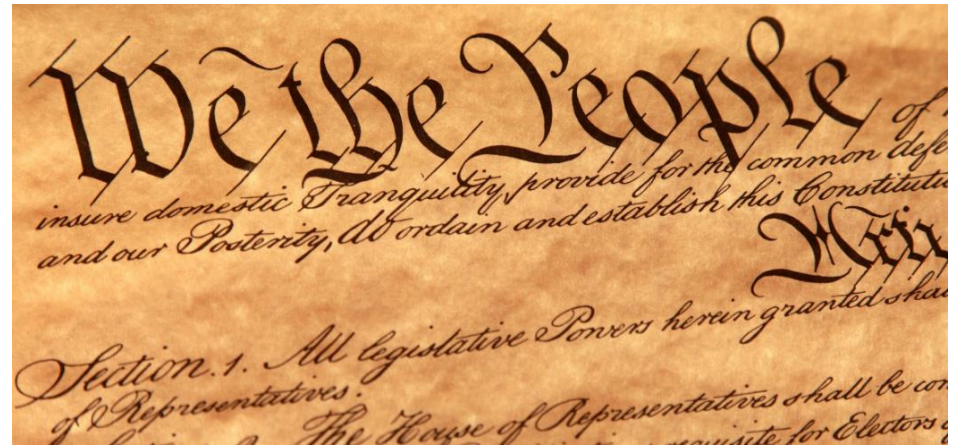 We the People of
insure domestic Tranquility, provide for the common defe
and our Posterity, do ordain and establish this Constitutio
Artic
Section. 1. All legislative Powers herein granted shal
of Representatives.
The House of Representatives shall be com
requisite for Electors